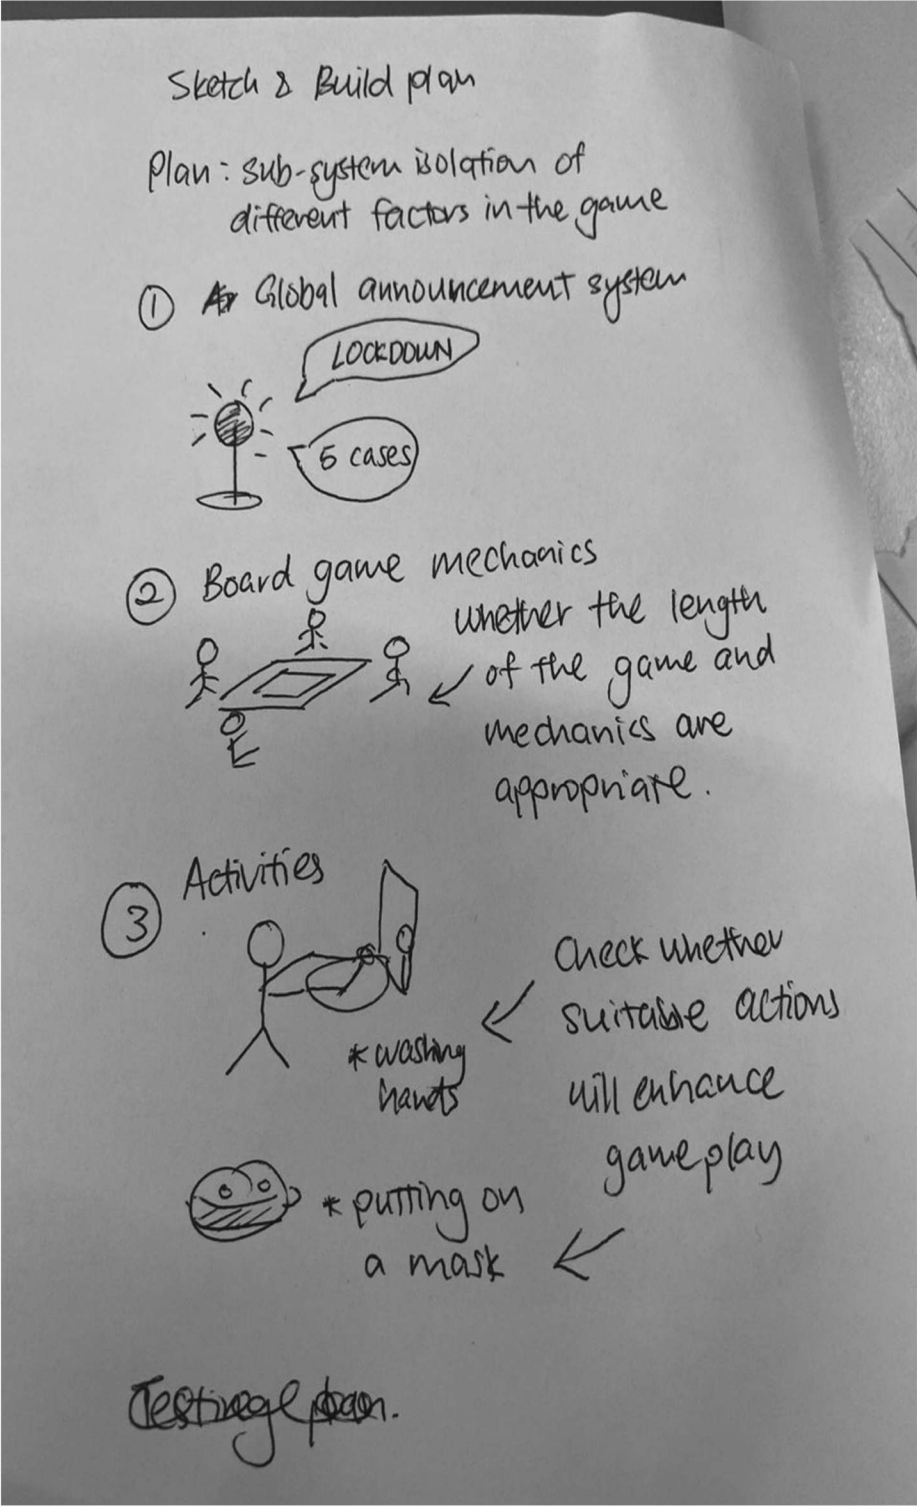 Sketch & Build plan
Plan: sub-system isolation of
different factors in the game
① Global announcement system
LOCKDOWN
5 cases
② Board game mechanics
whether the length
of the game and
mechanics are
appropriate.
③ Activities
Check whether
suitable actions
will enhance
gameplay
* washing
hands
* putting on
a mask